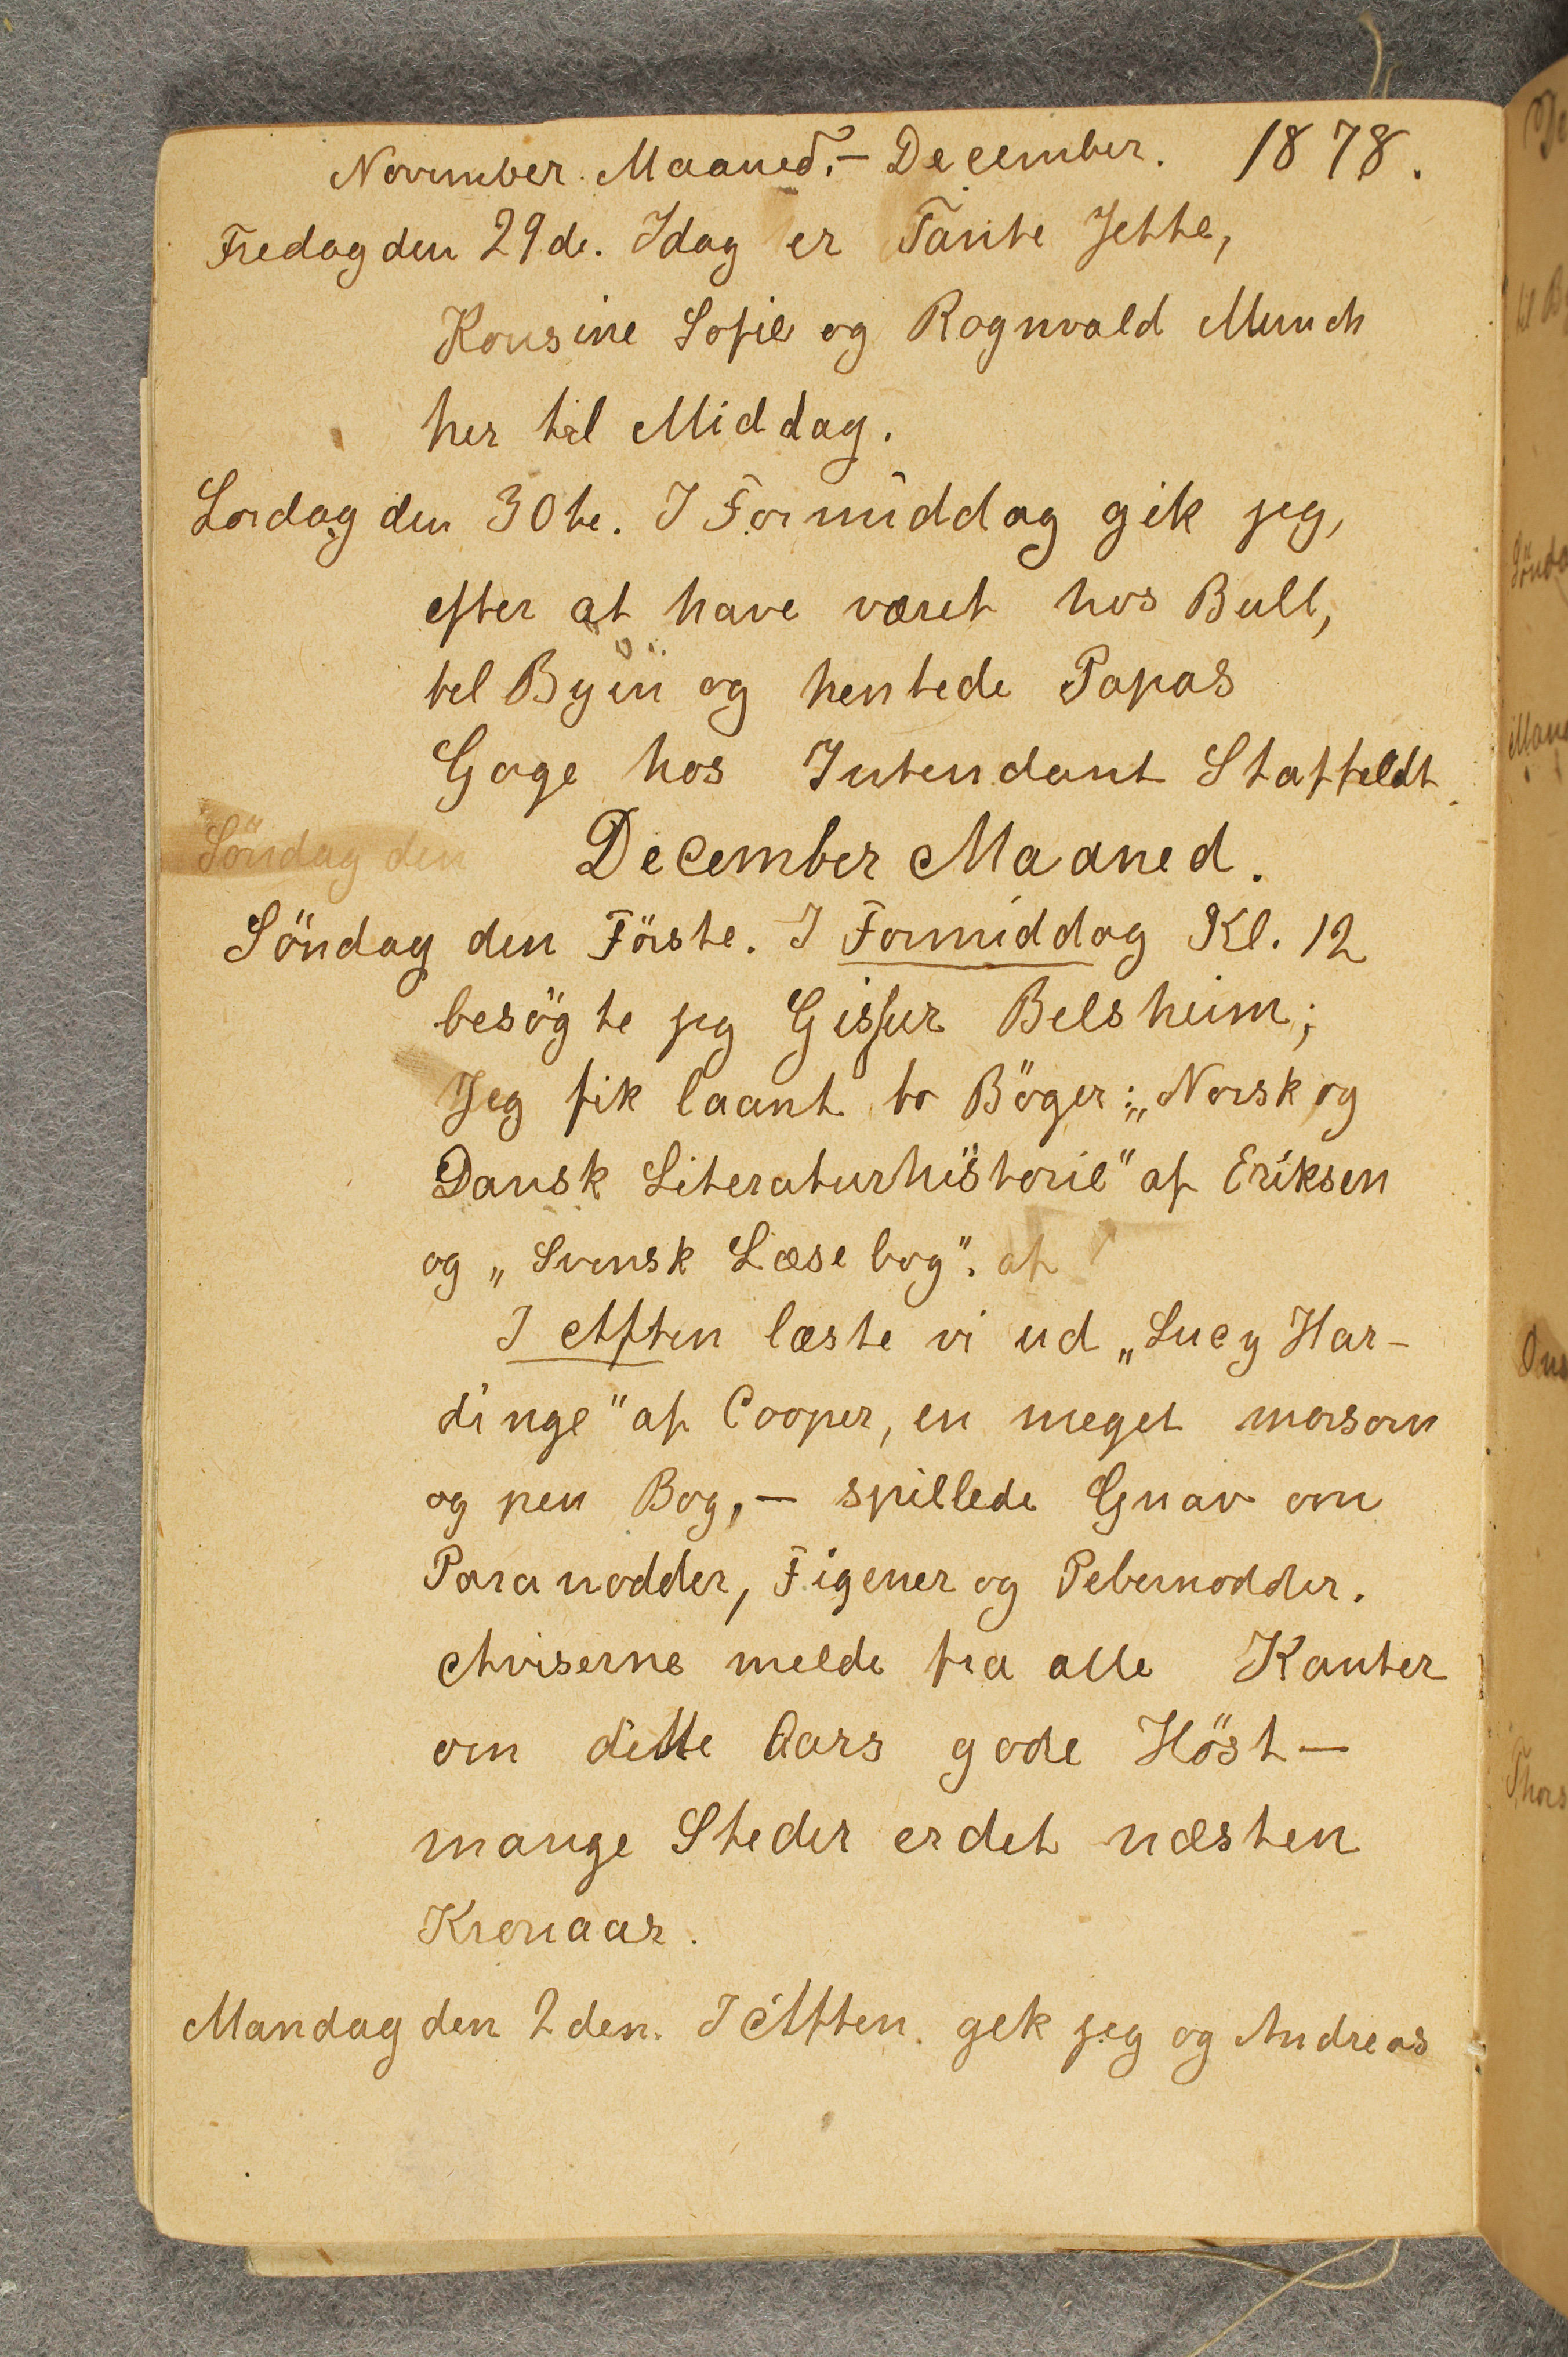 November Maaned.- December. 1878.
Fredag den 29de. Idag er Tante Jette,
Kousine Sofie og Rognvald Munch
her til Middag.
Lordag den 30te. I Formiddag gik jeg,
efter at have været hos Bull,
til Byen og hentede Papas
Gage hos Intendant Staffeldt.
Söndag den
December Maaned.
Söndag den Förste. I Formiddag Kl. 12
besögte jeg Gissur Belsheim;
Jeg fik laant to Böger: „Norsk og
Dansk Literaturhistorie" af Eriksen
og „Svensk Læsebog". af
I Aften læste vi ud „Lucy Har-
dinge" af Cooper, en meget morsom
og pen Bog, — spillede Gnav om
Paranodder, Figener og Pebernodder.
Aviserne melde fra alle Kanter
om dette Aars gode Höst —
mange Steder er det næsten
Kronaar.
Mandag den 2den. I Aften gik jeg og Andreas